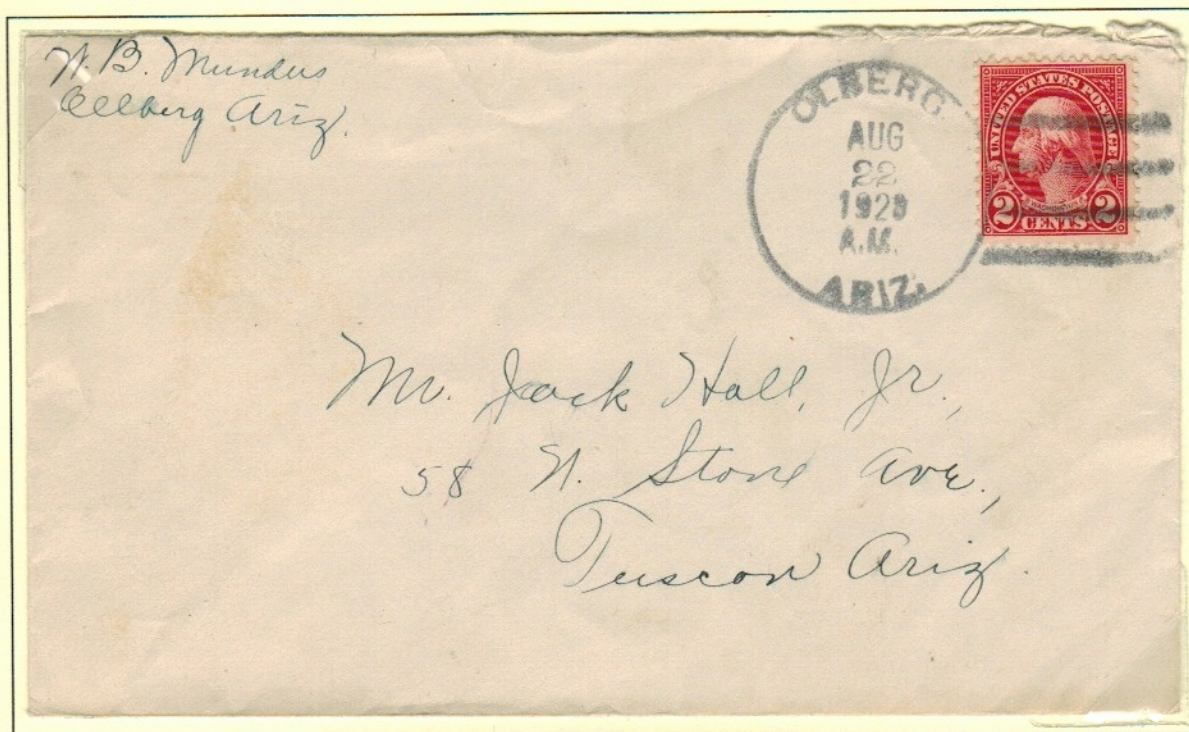 W. B. Mundus
Ollberg Ariz.
OLBERG
AUG
22
1929
A.M.
ARIZ.
UNITED STATES POSTAGE
WASHINGTON
2 CENTS 2
Mr. Jack Hall, Jr.,
58 N. Stone Ave.,
Tuscon Ariz.